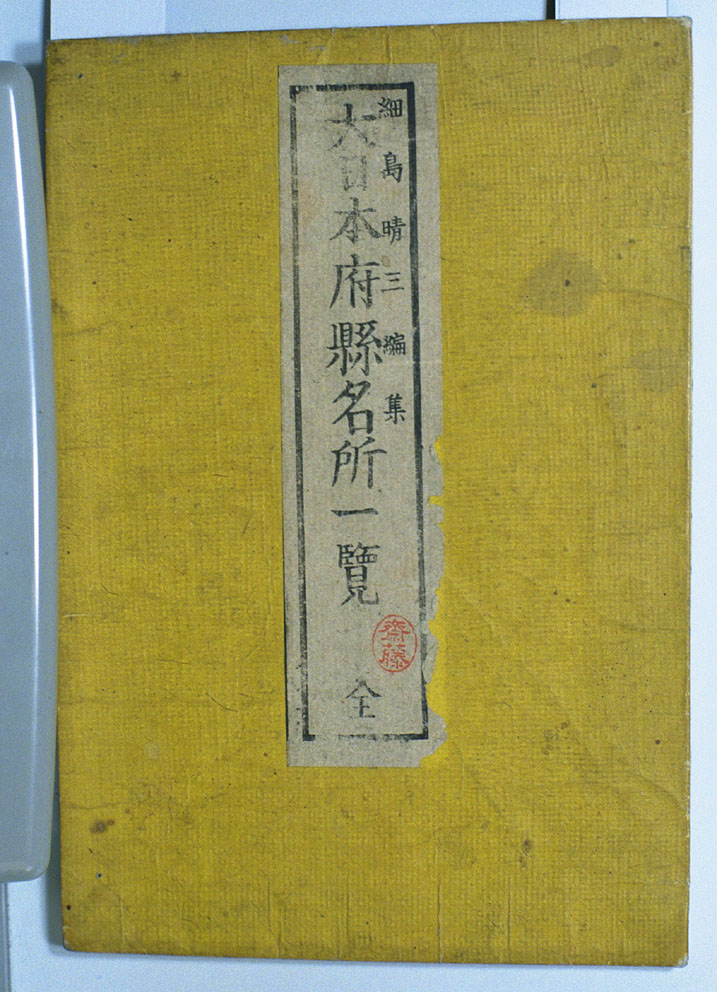 細島晴三編集
大日本府縣名所一覽
全
齋藤